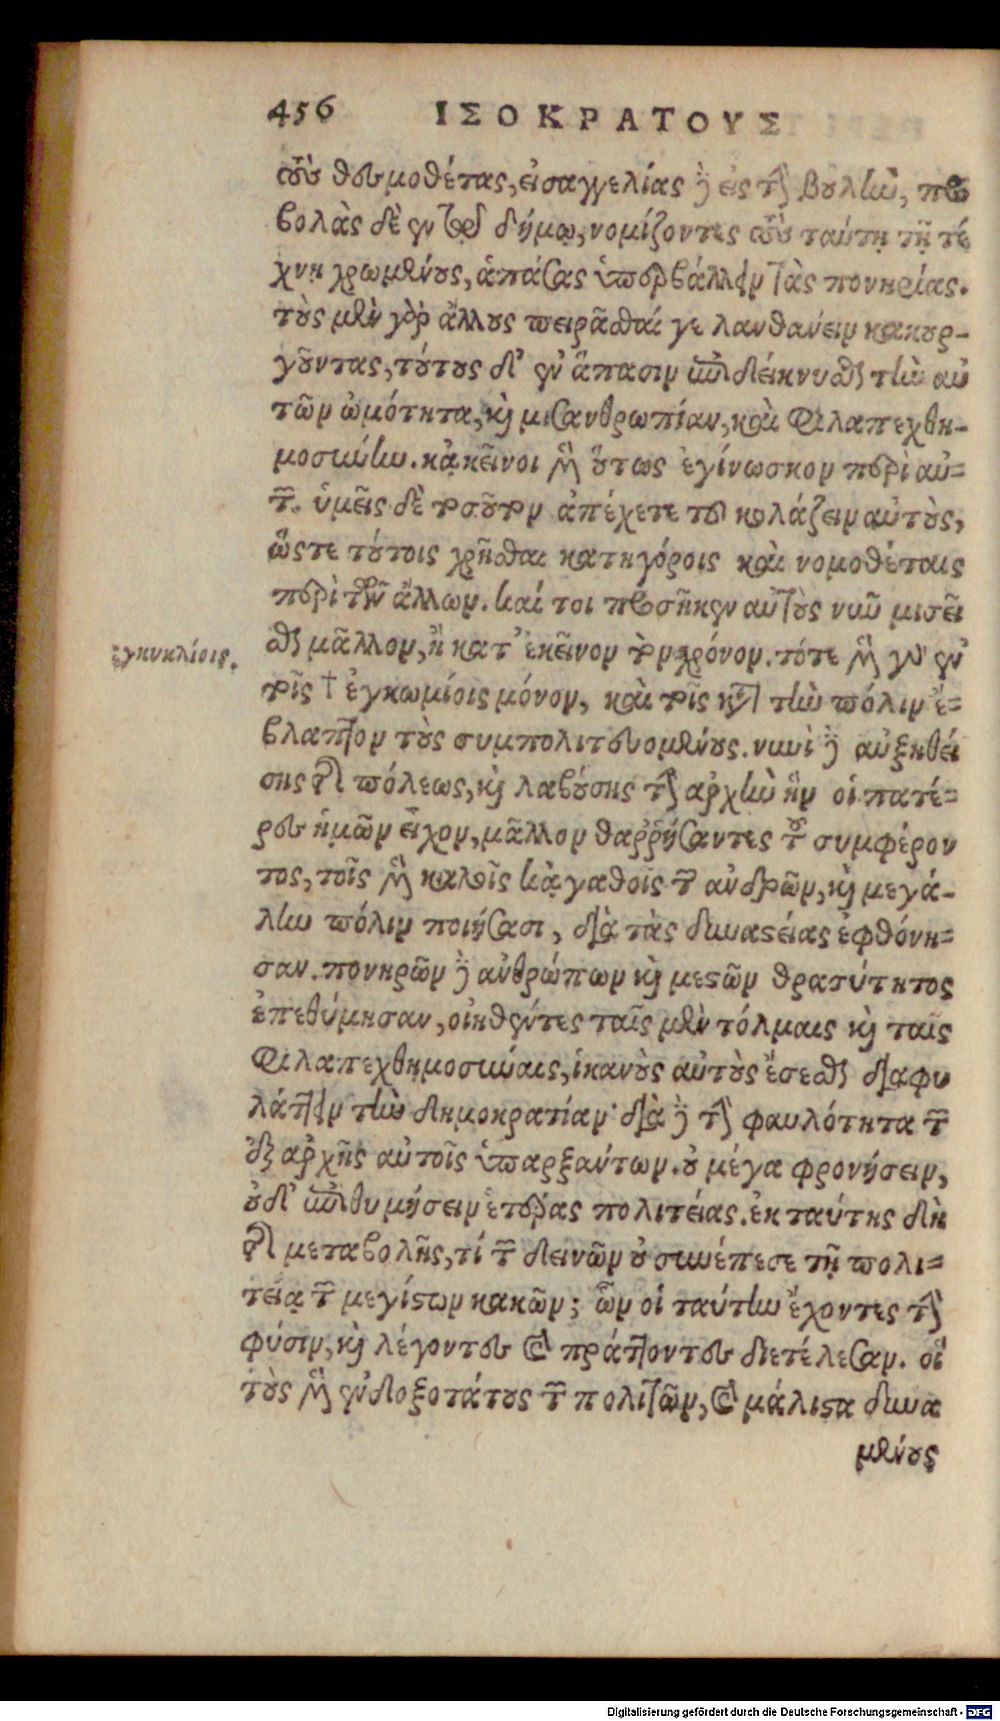 456 ΙΣΟΚΡΑΤΟΥΣ
τοὺς θεσμοθέτας, εἰσαγγελίας δὲ εἰς τὴν βουλὴν, προ
βολὰς δὲ ἐν τῷ δήμῳ, νομίζοντες τοὺς ταύτῃ τῇ τέ
χνῃ χρωμένους, ἁπάσας ὑπερβάλλειν τὰς πονηρίας.
τοὺς μὲν γὰρ ἄλλους πειρᾶσθαί γε λανθάνειν κακουρ-
γοῦντας, τούτους δ' ἐν ἅπασιν ἐπιδείκνυσθαι τὴν αὑ
τῶν ὠμότητα, καὶ μισανθρωπίαν, καὶ φιλαπεχθη-
μοσύνην. κἀκεῖνοι μὲν οὕτως ἐγίνωσκον περὶ αὐ=
τῶν. ὑμεῖς δὲ τοσοῦτον ἀπέχετε τοῦ κολάζειν αὐτοὺς,
ὥςτε τούτοις χρῆσθαι κατηγόροις καὶ νομοθέταις
περὶ τῶν ἄλλων. καί τοι προσῆκεν αὐτοὺς νῦν μισεῖ
σθαι μᾶλλον, ἢ κατ' ἐκεῖνον τὸν χρόνον. τότε μὲν γὰρ ἐν
ἐγκυκλίοις.
τοῖς † ἐγκωμίοις μόνον, καὶ τοῖς κατὰ τὴν πόλιν ἔ=
βλαπτον τοὺς συμπολιτευομένους. νυνὶ δὲ αὐξηθεί
σης τῆς πόλεως, καὶ λαβούσης τὴν ἀρχὴν ἣν οἱ πατέ=
ρες ἡμῶν εἶχον, μᾶλλον θαῤῥήσαντες τοῦ συμφέρον
τος, τοῖς μὲν καλοῖς κἀγαθοῖς τῶν ἀνδρῶν, καὶ μεγά-
λην πόλιν ποιήσασι, διὰ τὰς δυναστείας ἐφθόνη=
σαν. πονηρῶν δὲ ἀνθρώπων καὶ μεστῶν θρασύτητος
ἐπεθύμησαν, οἰηθέντες ταῖς μὲν τόλμαις καὶ ταῖς
φιλαπεχθημοσύναις, ἱκανοὺς αὐτοὺς ἔσεσθαι διαφυ
λάττειν τὴν δημοκρατίαν· διὰ δὲ τὴν φαυλότητα τῶν
ἐξ ἀρχῆς αὐτοῖς ὑπαρξάντων. οὐ μέγα φρονήσειν,
οὐδ' ἐπιθυμήσειν ἑτέρας πολιτείας. ἐκ ταύτης δὴ
τῆς μεταβολῆς, τί τῶν δεινῶν οὐ συνέπεσε τῇ πολι=
τείᾳ τῶν μεγίστων κακῶν; ὧν οἱ ταύτην ἔχοντες τὴν
φύσιν, καὶ λέγοντες καὶ πράττοντες διετέλεσαν. οἳ
τοὺς μὲν ἐνδοξοτάτους τῶν πολιτῶν, καὶ μάλιστα δυνα
μένους
Digitalisierung gefördert durch die Deutsche Forschungsgemeinschaft - DFG